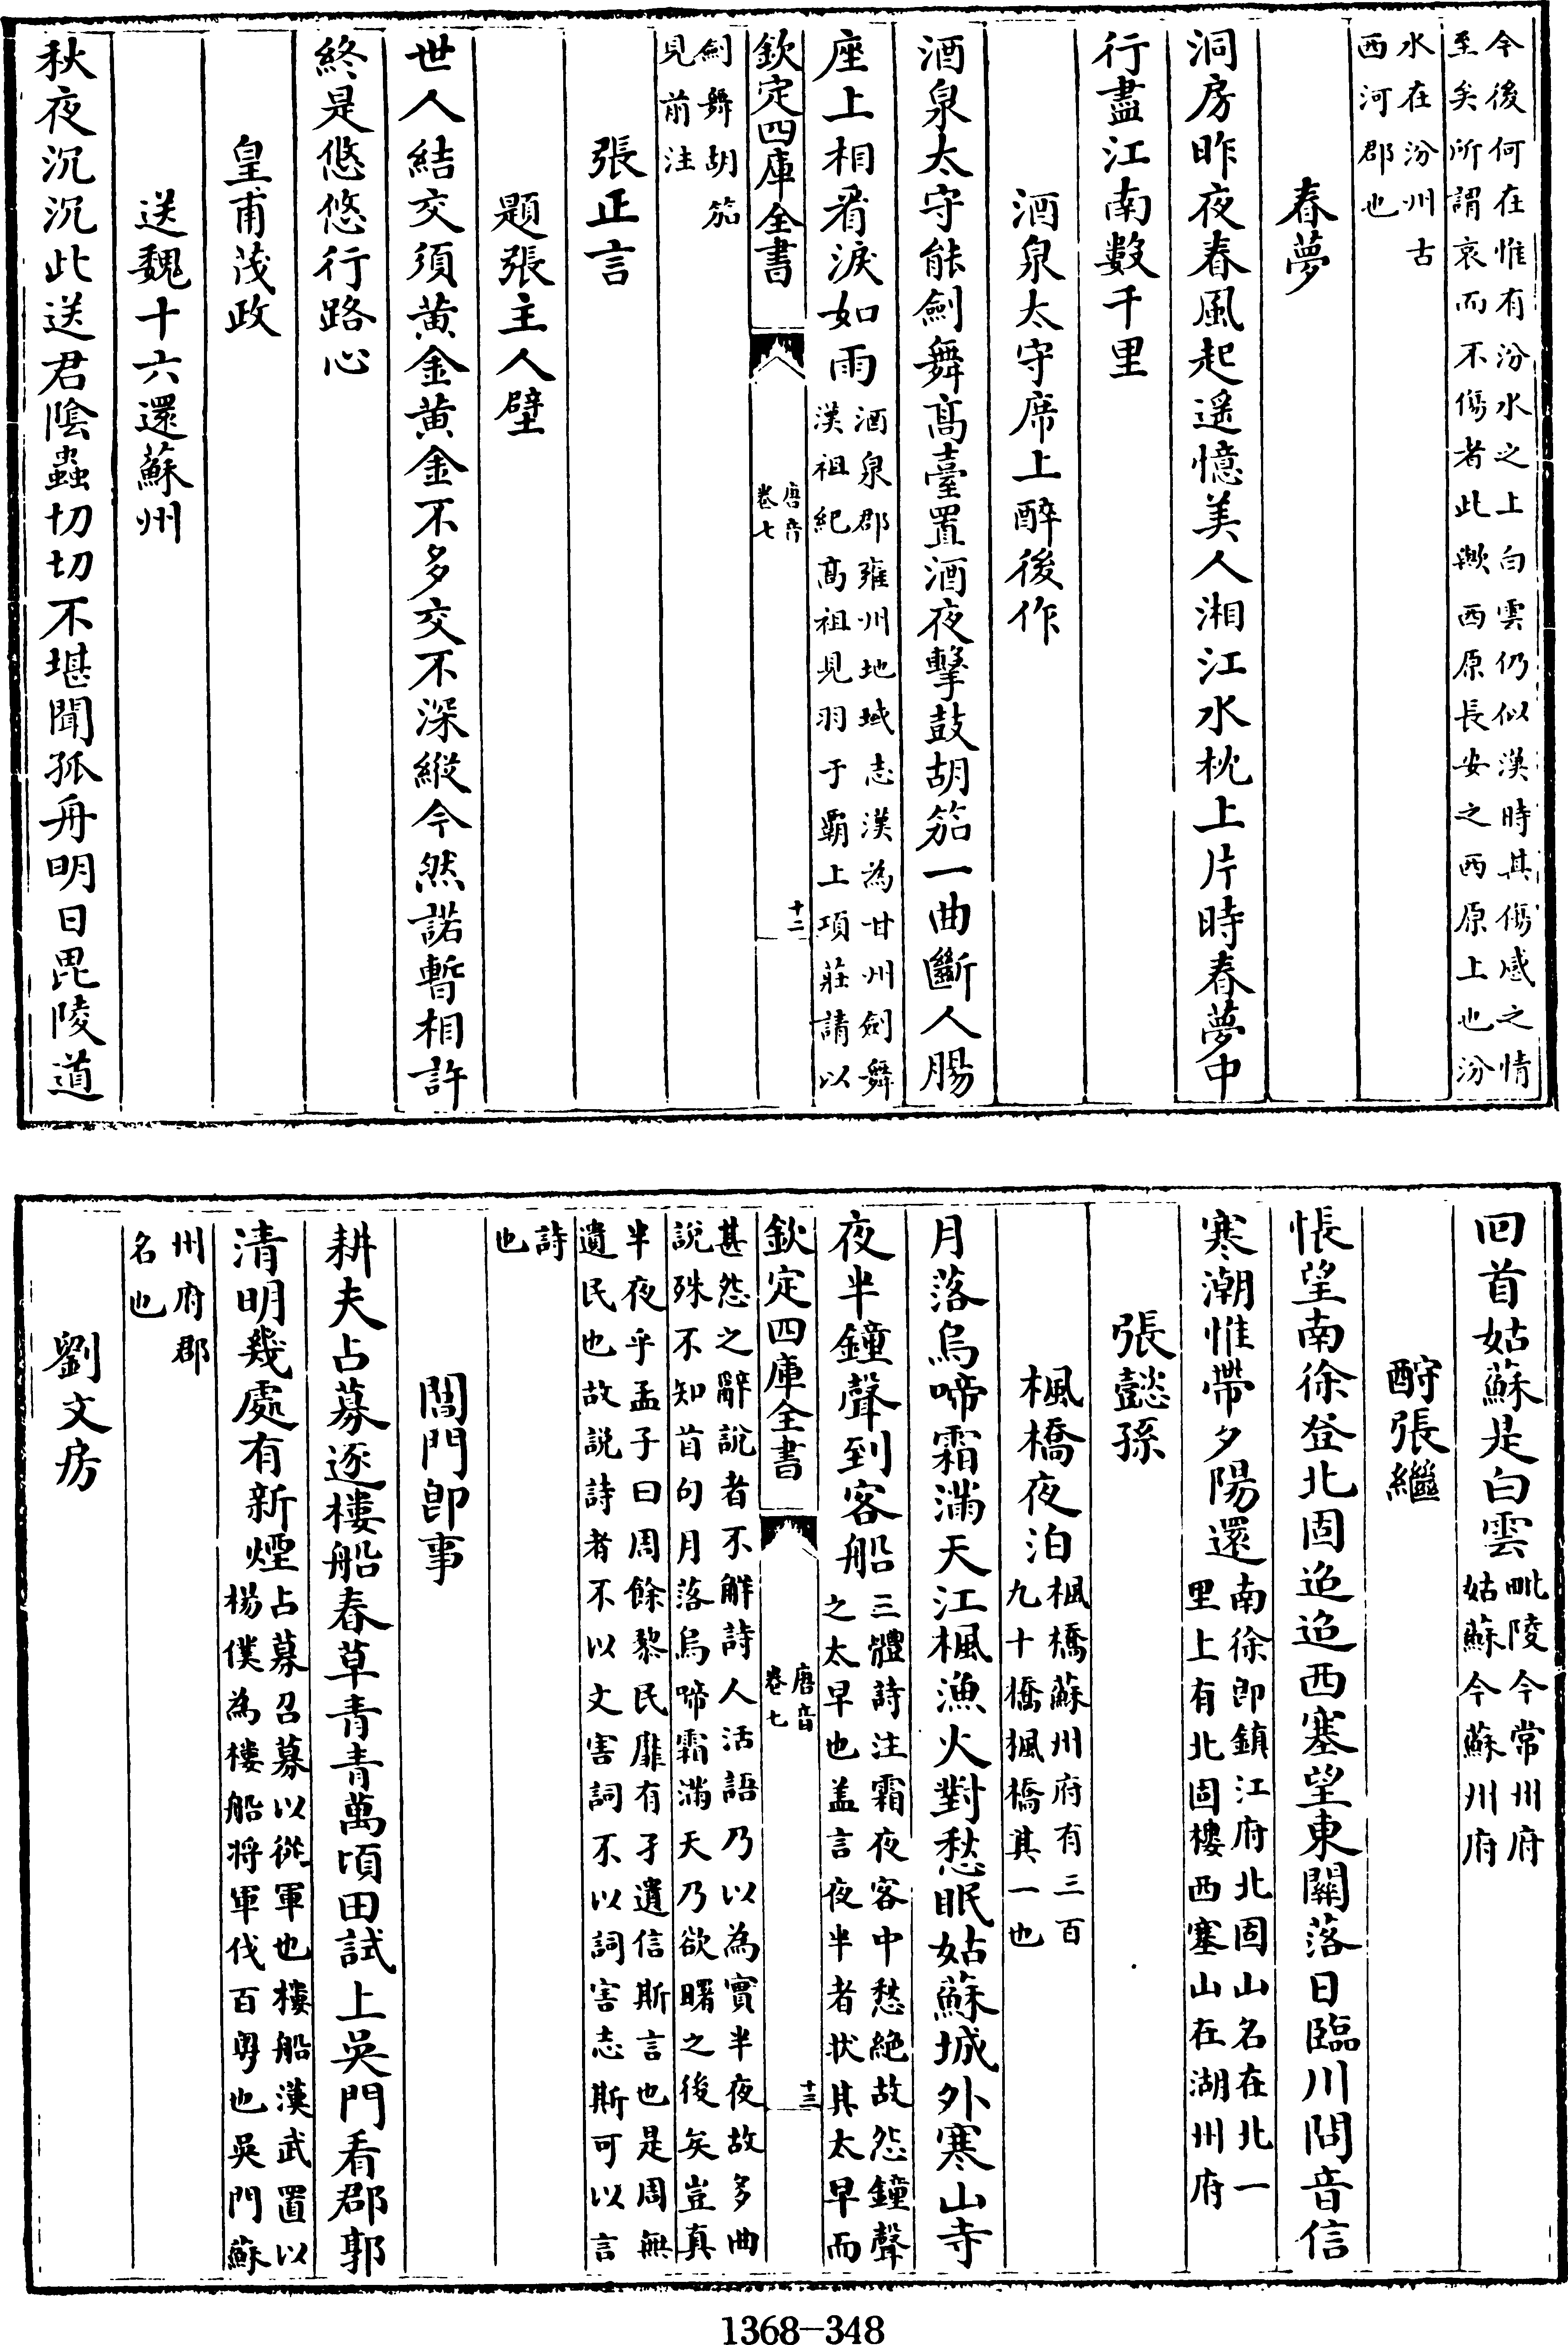 今後何在惟有汾水之上白雲仍似漢時其傷感之情
至矣所謂哀而不傷者此歟西原長安之西原上也汾
水在汾州古
西河郡也
春夢
洞房昨夜春風起遥憶美人湘江水枕上片時春夢中
行盡江南數千里
酒泉太守席上醉後作
酒泉太守能劍舞髙臺置酒夜擊鼓胡笳一曲斷人腸
座上相看淚如雨
酒泉郡雍州地域志漢為甘州劍舞
漢祖紀髙祖見羽于霸上項莊請以
欽定四庫全書
唐音
卷七
十二
劍舞胡笳
見前注
張正言
題張主人壁
世人結交須黄金黄金不多交不深縱令然諾暫相許
終是悠悠行路心
皇甫茂政
送魏十六還蘇州
秋夜沉沉此送君陰蟲切切不堪聞孤舟明日毘陵道
回首姑蘇是白雲
毗陵今常州府
姑蘇今蘇州府
酧張繼
悵望南徐登北固迢迢西塞望東關落日臨川問音信
寒潮惟帶夕陽還
南徐即鎮江府北固山名在北一
里上有北固樓西塞山在湖州府
張懿孫
楓橋夜泊
楓橋蘇州府有三百
九十橋楓橋其一也
月落烏啼霜滿天江楓漁火對愁眠姑蘇城外寒山寺
夜半鐘聲到客船
三體詩注霜夜客中愁絶故怨鐘聲
之太早也盖言夜半者狀其太早而
欽定四庫全書
唐音
卷七
十三
甚怨之辭說者不解詩人活語乃以為實半夜故多曲
說殊不知首句月落烏啼霜滿天乃欲曙之後矣豈真
半夜乎孟子曰周餘黎民靡有孑遺信斯言也是周無
遺民也故説詩者不以文害詞不以詞害志斯可以言
詩
也
閶門即事
耕夫占募逐樓船春草青青萬頃田試上吳門看郡郭
清明幾處有新煙
占募召募以從軍也樓船漢武置以
楊僕為樓船将軍伐百粤也吳門蘇
州府郡
名也
劉文房
1368-348